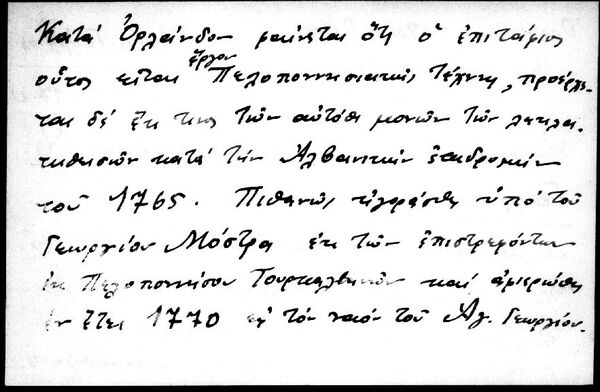 Κατά Ὀρλάνδον φαίνεται ὅτι ὁ ἐπιτάφιος
οὗτος εἶναι ἔργον Πελοποννησιακῆς τέχνης, προέρχε-
ται δέ ἔκ τινος τῶν αὐτόθι μονῶν τῶν λεηλα-
τηθεισῶν κατά τήν Ἀλβανικήν ἐπιδρομήν
τοῦ 1765. Πιθανῶς ἠγοράσθη ὑπό τοῦ
Γεωργίου Μόστρα ἐκ τῶν ἐπιστρεφόντων
ἐκ Πελοποννήσου Τουρκαλβανῶν καί ἀφιερώθη
ἐν ἔτει 1770 εἰς τόν ναόν τοῦ Ἁγ. Γεωργίου.